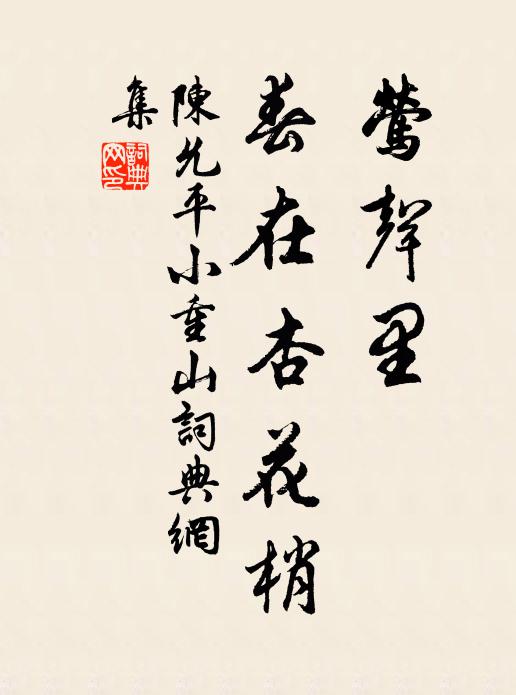 鶯聲里
春在杏花梢
陳允平小重山詞典網
集
詞典
网印